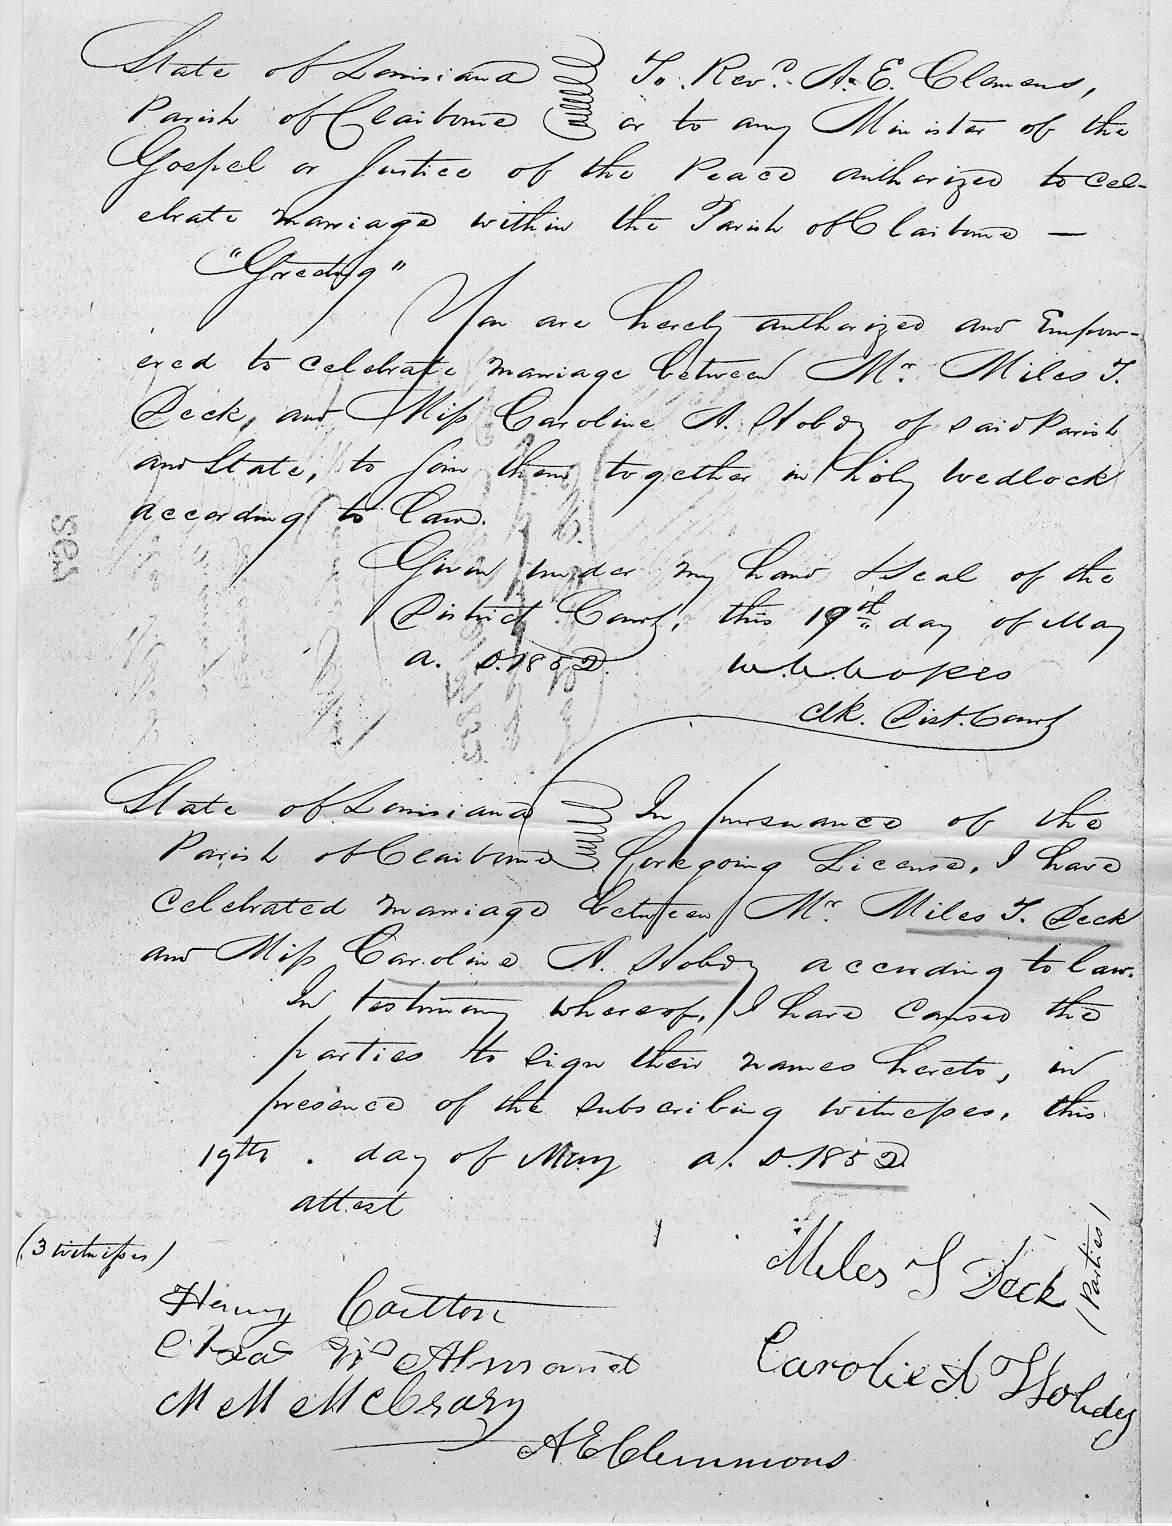 State of Louisiana To Revd. A. E. Clemens,
Parish of Claiborne or to any Minister of the
Gospel or Justice of the Peace authorized to cel-
ebrate marriage within the Parish of Claiborne —
"Greeting"
You are hereby authorized and Empow-
ered to celebrate marriage between Mr. Miles T.
Deck, and Miss Caroline A. Hobdy of said Parish
and State, to join them together in holy wedlock
according to law.
Given under my hand & Seal of the
District Court, this 19th day of May
a. D. 1852.
Clk. Dist. Court
State of Louisiana In pursuance of the
Parish of Claiborne foregoing License, I have
celebrated marriage between Mr. Miles T. Deck
and Miss Caroline A. Hobdy according to law.
In testimony whereof, I have caused the
parties to sign their names hereto, in
presence of the subscribing witnesses, this
19th. day of May a. D. 1852
attest
(3 witnesses)
Miles T Deck
(Parties)
Henry
Caroline A Hobdy
M M McCrary
A E Clemmons